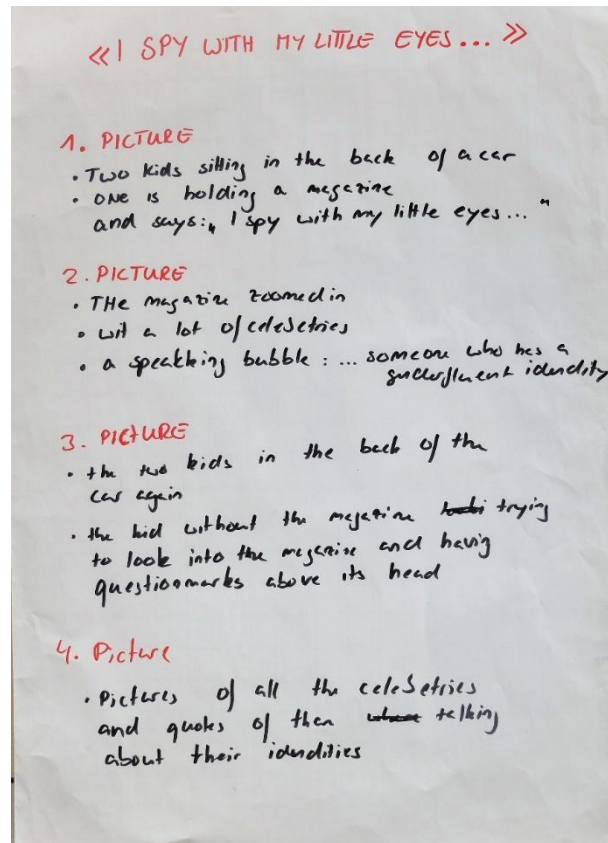 «I SPY WITH MY LITTLE EYES... »
1. PICTURE
• Two kids sitting in the back of a car
• ONE is holding a magazine
and says: „ I spy with my little eyes... "
2. PICTURE
• THe magazine zoomed in
• wit a lot of celebetries
• a speakking bubble : ... someone who has a
genderfluent idendity
3. PICtURE
• the two kids in the back of the
car again
• the kid without the magazine trying
to look into the magazine and havig
questionmarks above its head
4. Picture
• Pictures of all the celebetries
and quotes of then talking
about their idendities